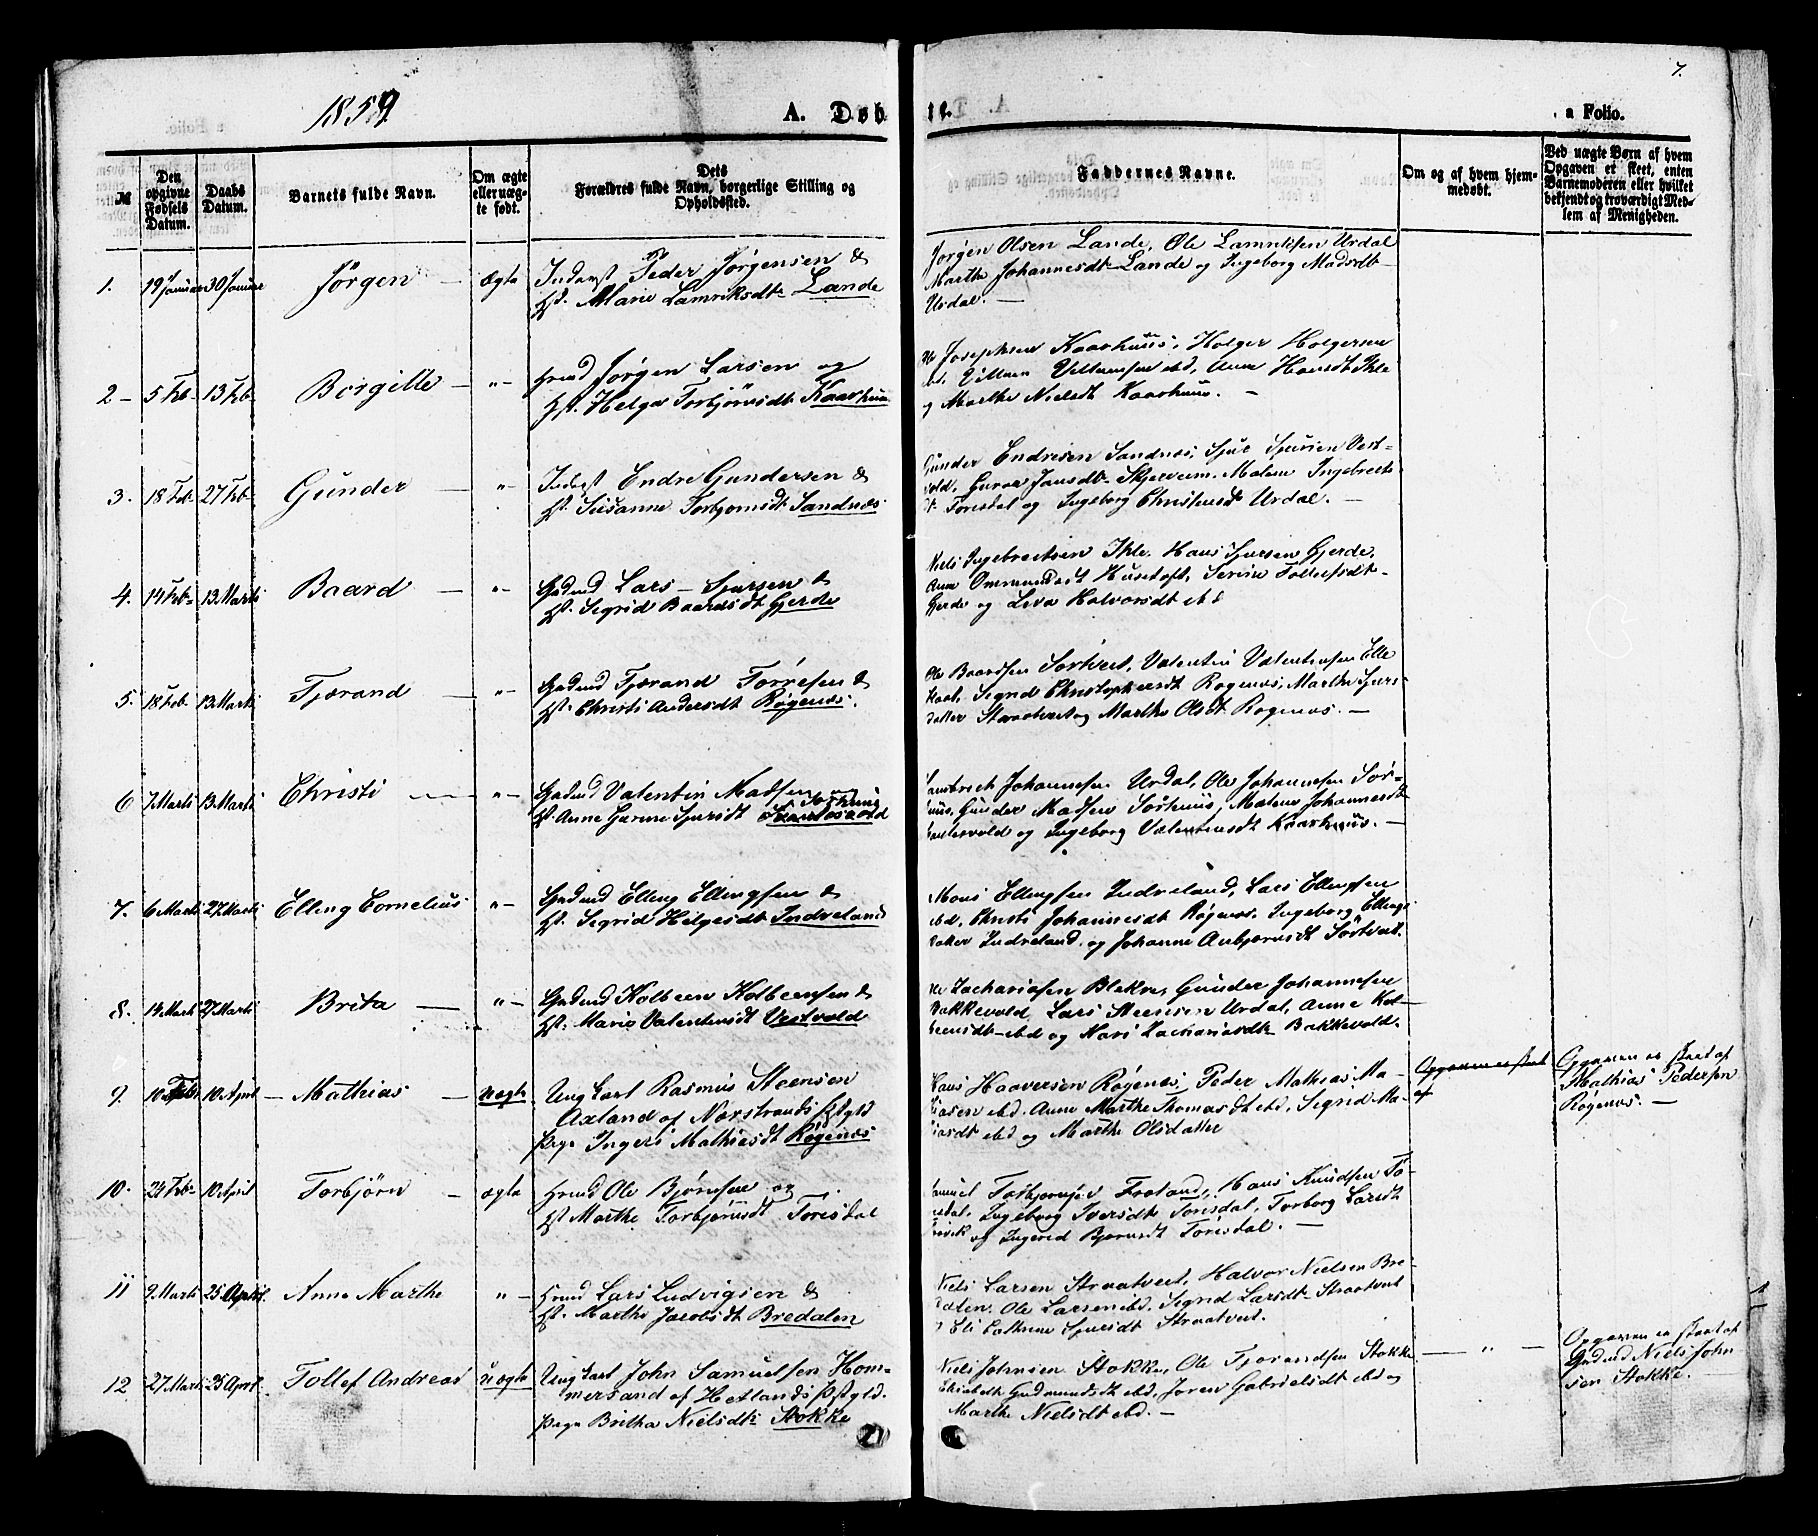 7.
1859
A. Døb
te.
a Folio.
№
Den opgivne Fødsels Datum.
Daabs Datum.
Barnets fulde Navn.
Om ægte eller uæg-te født.
Dets Forældres fulde Navn, borgerlige Stilling og Opholdssted.
Faddernes Navne.
Om og af hvem hjem-medøbt.
Ved uægte Børn af hvem Opgaven er skeet, enten Barnemoderen eller hvilket bekjendt og troværdigt Med-lem af Menigheden.
1. 19 Januar 30 Januar Jørgen — Ægte
Inderst Peder Jørgensen &
H. Marie Lamriksdt. Lande
Jørgen Olsen Lande, Ole Lamriksen Urdal
Marthe Johannesdt Lande og Ingeborg Madsdt
Urdal. —
2 — 5 Feb 13 Feb Borgille — " —
Grmd Jørgen Larsen og
H. Helga Torbjörnsdt. Kaarhuus
Josephsen Kaarhuus, Holger Holgersen
ibd, Villum Villumsen ibd, Anne Hansdt Ihle
og Marthe Nielsdt Kaarhuus. —
3. 18 Feb 27 Feb Gunder — " —
Inderst Endre Gundersen &
H. Susanne Torbjornsdt Sandnæs
Gunder Endresen Sandnæs, Sjur Sjursen Vest-
vold, Guroe Jansdt. Skjerveim, Malene Ingebrets-
dt. Torisdal og Ingeborg Christensdt Urdal. —
4. 14 Feb 13 Marti Baard — " —
Gadmd Lars — Sjursen &
H. Sigrid Baardsdt Gjerde
Niels Ingebretsen Ihle, Hans Sjursen Gjerde,
Anne Ommundsdt Husetoft, Serine Tollefsdt
Gjerde og Siva Halvorsdt ibd
5. 18 Feb. 13 Marti Tjærand — " —
Gadmd Tjærand Törresen &
H. Christi Andersdt Røgenæs.
Ole Baardsen Sørtveit, Valentin Valentinsen Elle
Haat, Sigrid Christophersdt Røgenæs, Marthe Sjurs-
datter Straatveit og Marthe Olsdt Røgenæs. —
6 7 Marti 13 Marti Christi — " —
Gadmd Valentin Madsen og
H. Anne Gurine Sjursdt Sørhuus
Johannesen Urdal, Ole Johannesen Sør-
huus, Gunder Madsen Sørhuus, Malene Johannesdt
og Ingeborg Valentinsdt Kaarhuus. —
7. 6 Marti 27 Marti Elling Cornelius " —
Gadmd Elling Ellingsen &
H. Sigrid Helgesdt Indreland
Mons Ellingsen Indreland, Lars Ellingsen
ibd, Christi Johannesdt Røgenæs, Ingeborg Ellings
datter Indreland, og Johanne Asbjørnsdt Sørtveit.
8. 14 Marti 27 Marti Brita — " —
Gadmd Kolbeen Kolbeensen &
H. Marie Valentinsdt Vestvold
Zachariasen Blekne, Gunder Johannesen
Bakkevold, Lars Steensen Urdal, Anne Kol-
beensdt ibd og Kari Zachariasdt. Bakkevold.
9. 10 Feb 10 April — Mathias — uægte
Ung Karl Rasmus Steensen
Axland af Nærstrands Præstgld
Pige Ingeri Mathiasdt Røgenæs
Hans Haaversen Røgenæs, Peder Mathias Ma-
thiasen ibd, Anne Marthe Thomasdt ibd, Sigrid Ma-
thiasdt ibd og Marthe Olsdatter
Opgaven er skeet
af
Opgaven er skeet af
Mathias Pedersen
Røgenæs. —
10. 24 Feb 10 April Torbjörn — ægte
Grmd Ole Bjørnsen og
H. Marthe Torbjörnsdt Torisdal
Samuel Torbjørnsen Frøland, Hans Knudsen To-
risdal, Ingeborg Iversdt Torisdal, Torborg Larsdt
og Ingerid Bjørnsdt Torisdal. —
11 2 Marti 25 April Anne Marthe " —
Grmd Lars Ludvigsen &
H. Marthe Jacobsdt Bredalen
Niels Larsen Straatveit, Halvor Nielsen Bre-
dalen, Ole Larsen ibd, Sigrid Larsdt Straatveit
og Eli Cathrine Sjursdt Straatveit.
12 27 Marti 25 April Tollef Andreas uægte
Ung Karl John Samuelsen Hom-
mersand af Hetlands Præstgld.
Pige Britha Nielsdt Stokke
Niels Johnsen Stokke, Ole Tjerandsen Stokke
Elisabeth Gudmundsdt ibd, Joren Gabrielsdt ibd og
Marthe Nielsdt ibd. —
— " —
Opgaven er skeet af
Gadmd Niels John
sen Stokke.